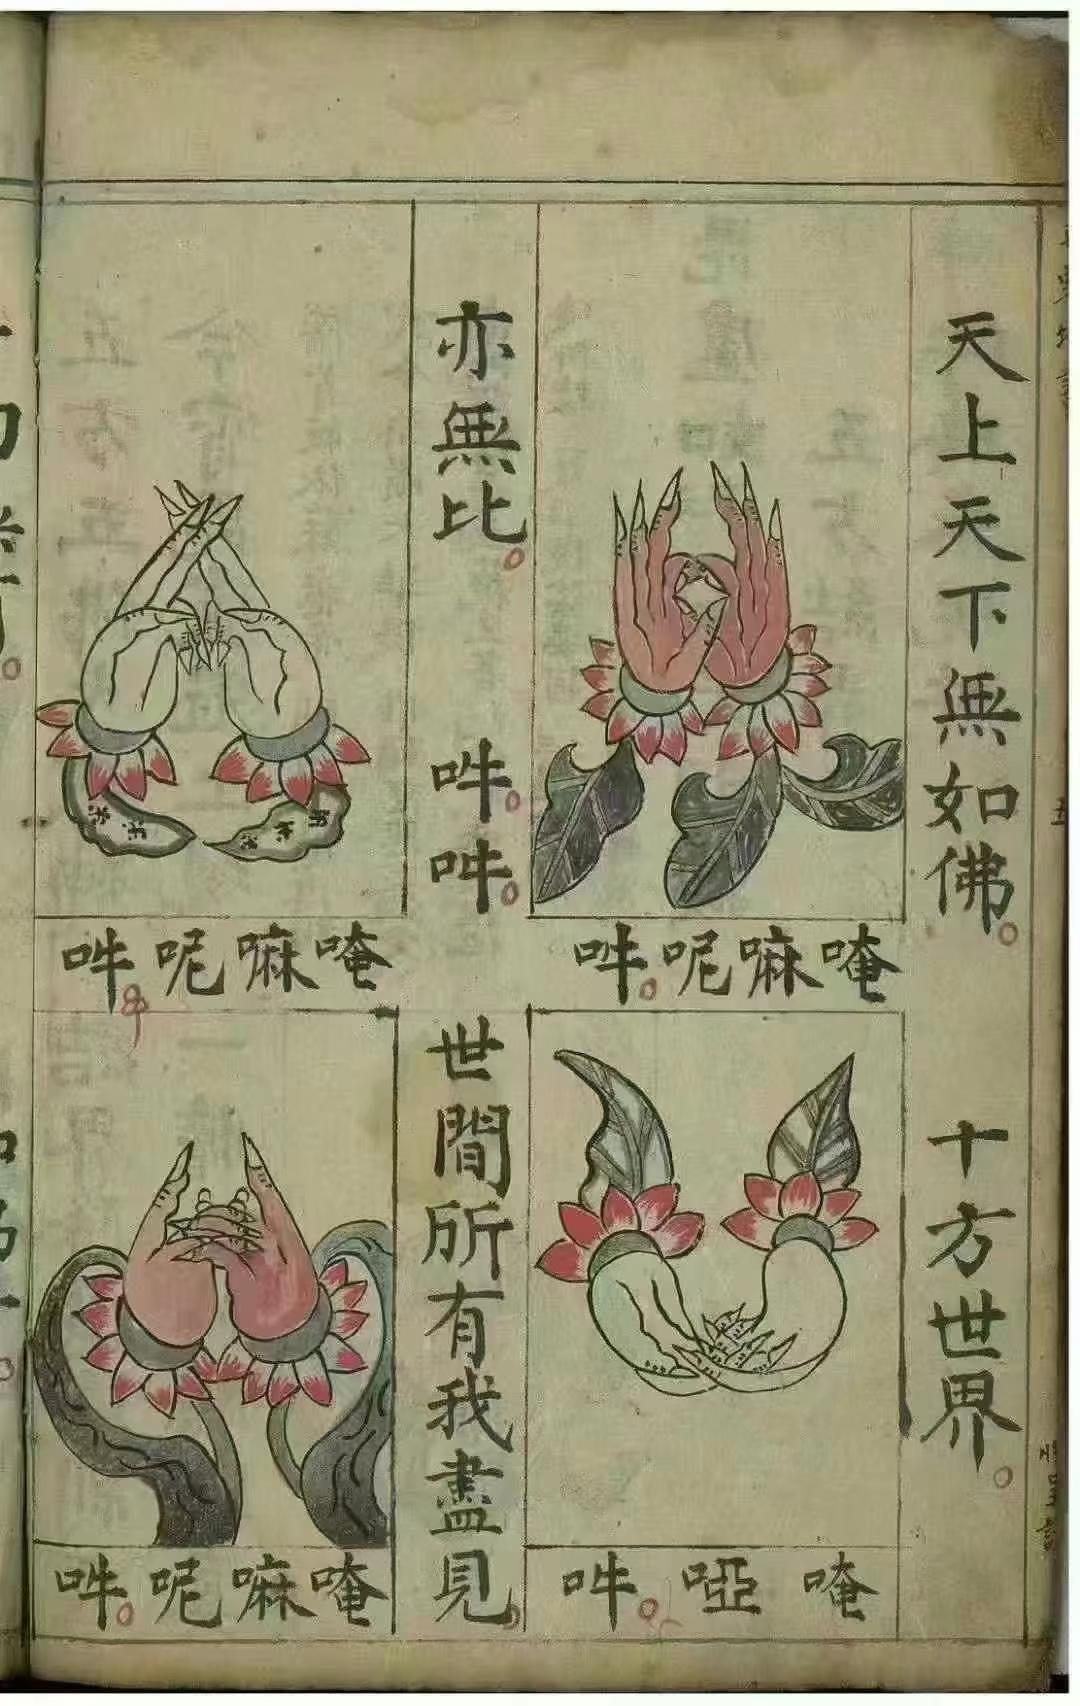 天上天下無如佛。
十方世界。
唵嘛呢吽。
唵啞吽。
亦無比。
吽。吽。
世間所有我盡見。
唵嘛呢吽
唵嘛呢吽。